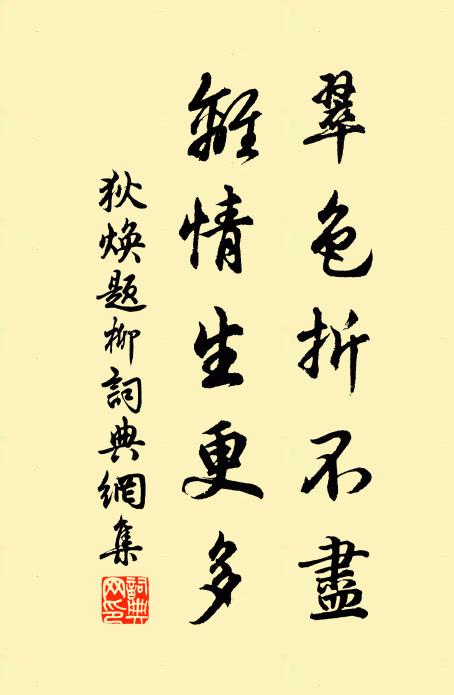 翠色折不盡
離情生更多
狄煥題柳詞典網集
詞典网印